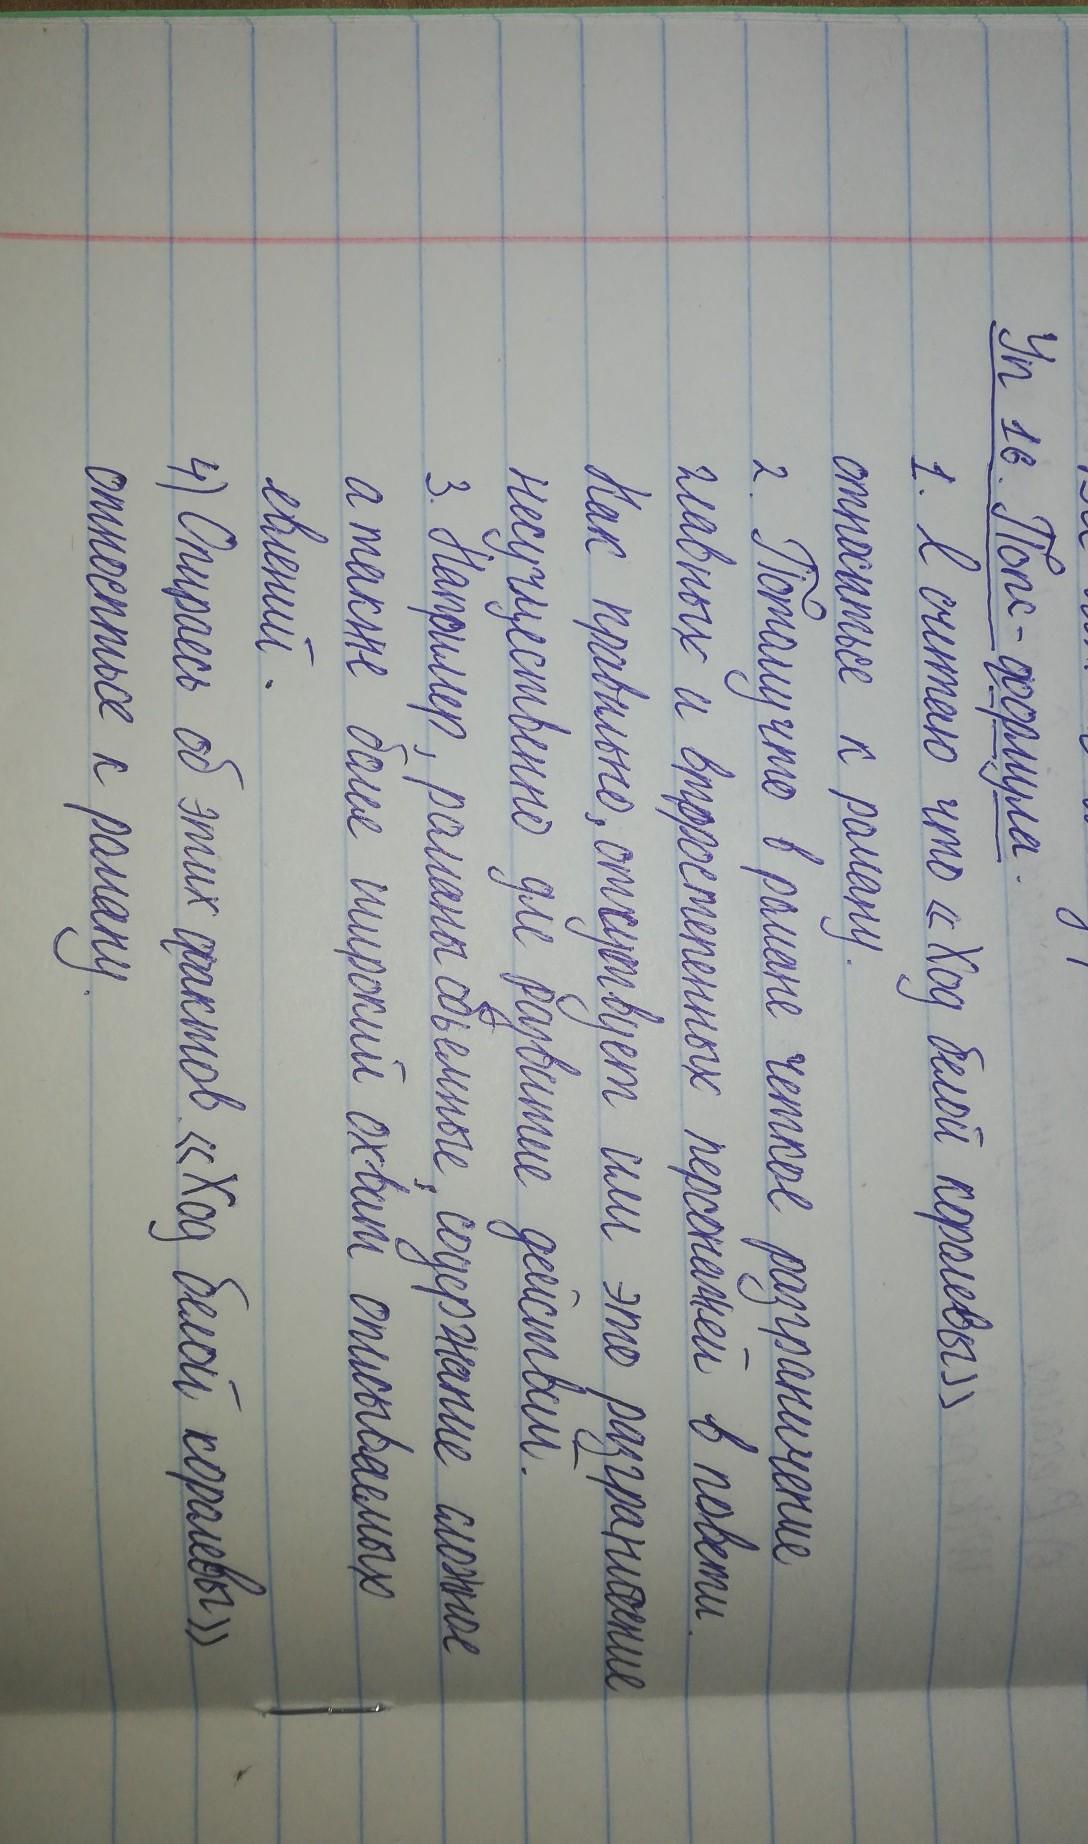 Уп 1б. Попс-формула.
1. Я считаю что «Ход белой королевы»
относитьсе к роману.
2. Потомучто в романе четкое разграничение
главных и второстепенных персонажей в повести.
Как правильно, отсутствует или это разграничение
несущественно для развитие действий.
3. Например, романы объемные, содержание сложное
а также более широкий охват описываемых
евлений.
4) Опираесь об этих фактов «Ход белой королевы»
относитьсе к роману.